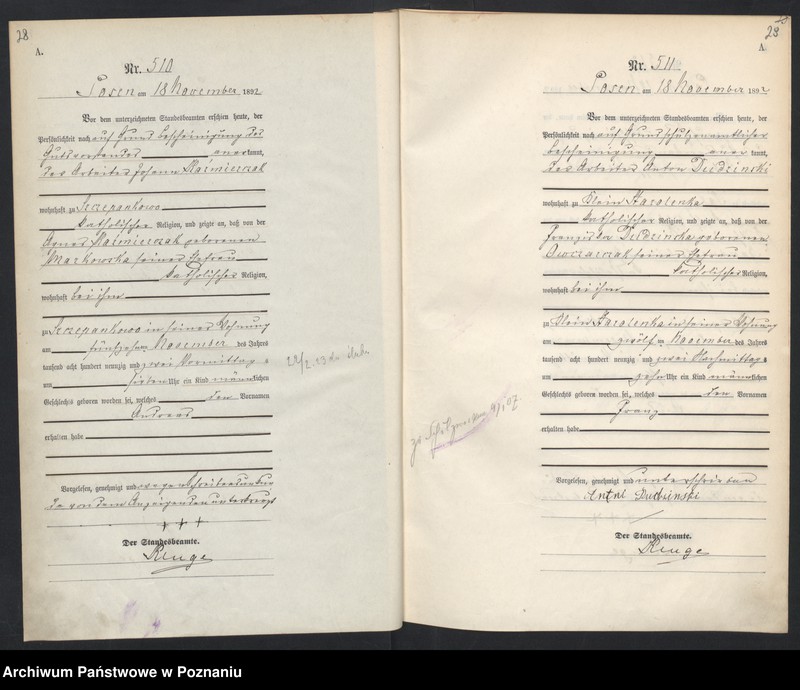 28
A.
Nr. 510
Posen am 18 November 1892
Vor dem unterzeichneten Standesbeamten erschien heute, der
Persönlichkeit nach auf Grund Bescheinigung des
Gutsvorstandes anerkannt,
der Arbeiter Johann Kaźmierczak
wohnhaft zu Szczepankowo
katholischer Religion, und zeigte an, daß von der
Agnes Kaźmierczak geborenen
Markowska seiner Ehefrau
katholischer Religion,
wohnhaft bei ihm
zu Szczepankowo in seiner Wohnung
am fünfzehn ten November des Jahres
tausend acht hundert neunzig und zwei Vormittags
um Uhr ein Kind männlichen
Geschlechts geboren worden sei, welches den Vornamen
Andreas
erhalten habe
Vorgelesen, genehmigt und wegen Schreibensunkunde
von dem Anzeigenden unterkreuzt
+ + +
Der Standesbeamte.
Kluge
29
A
Nr. 511
Posen am 18 November 1892
Vor dem unterzeichneten Standesbeamten erschien heute, der
Persönlichkeit nach auf Grund schulzenamtlicher
Bescheinigung anerkannt,
der Arbeiter Anton Dudzinski
wohnhaft zu Klein Starolenka
katholischer Religion, und zeigte an, daß von der
Franziska Dudzinska geborenen
Owczarczak seiner Ehefrau
katholischer Religion,
wohnhaft bei ihm
zu Klein Starolenka in seiner Wohnung
am zwölf ten November des Jahres
tausend acht hundert neunzig und zwei Nachmittags
um zehn Uhr ein Kind männlichen
Geschlechts geboren worden sei, welches den Vornamen
Franz
erhalten habe
Vorgelesen, genehmigt und unterschrieben
Der Standesbeamte.
Kluge
Archiwum Państwowe w Poznaniu